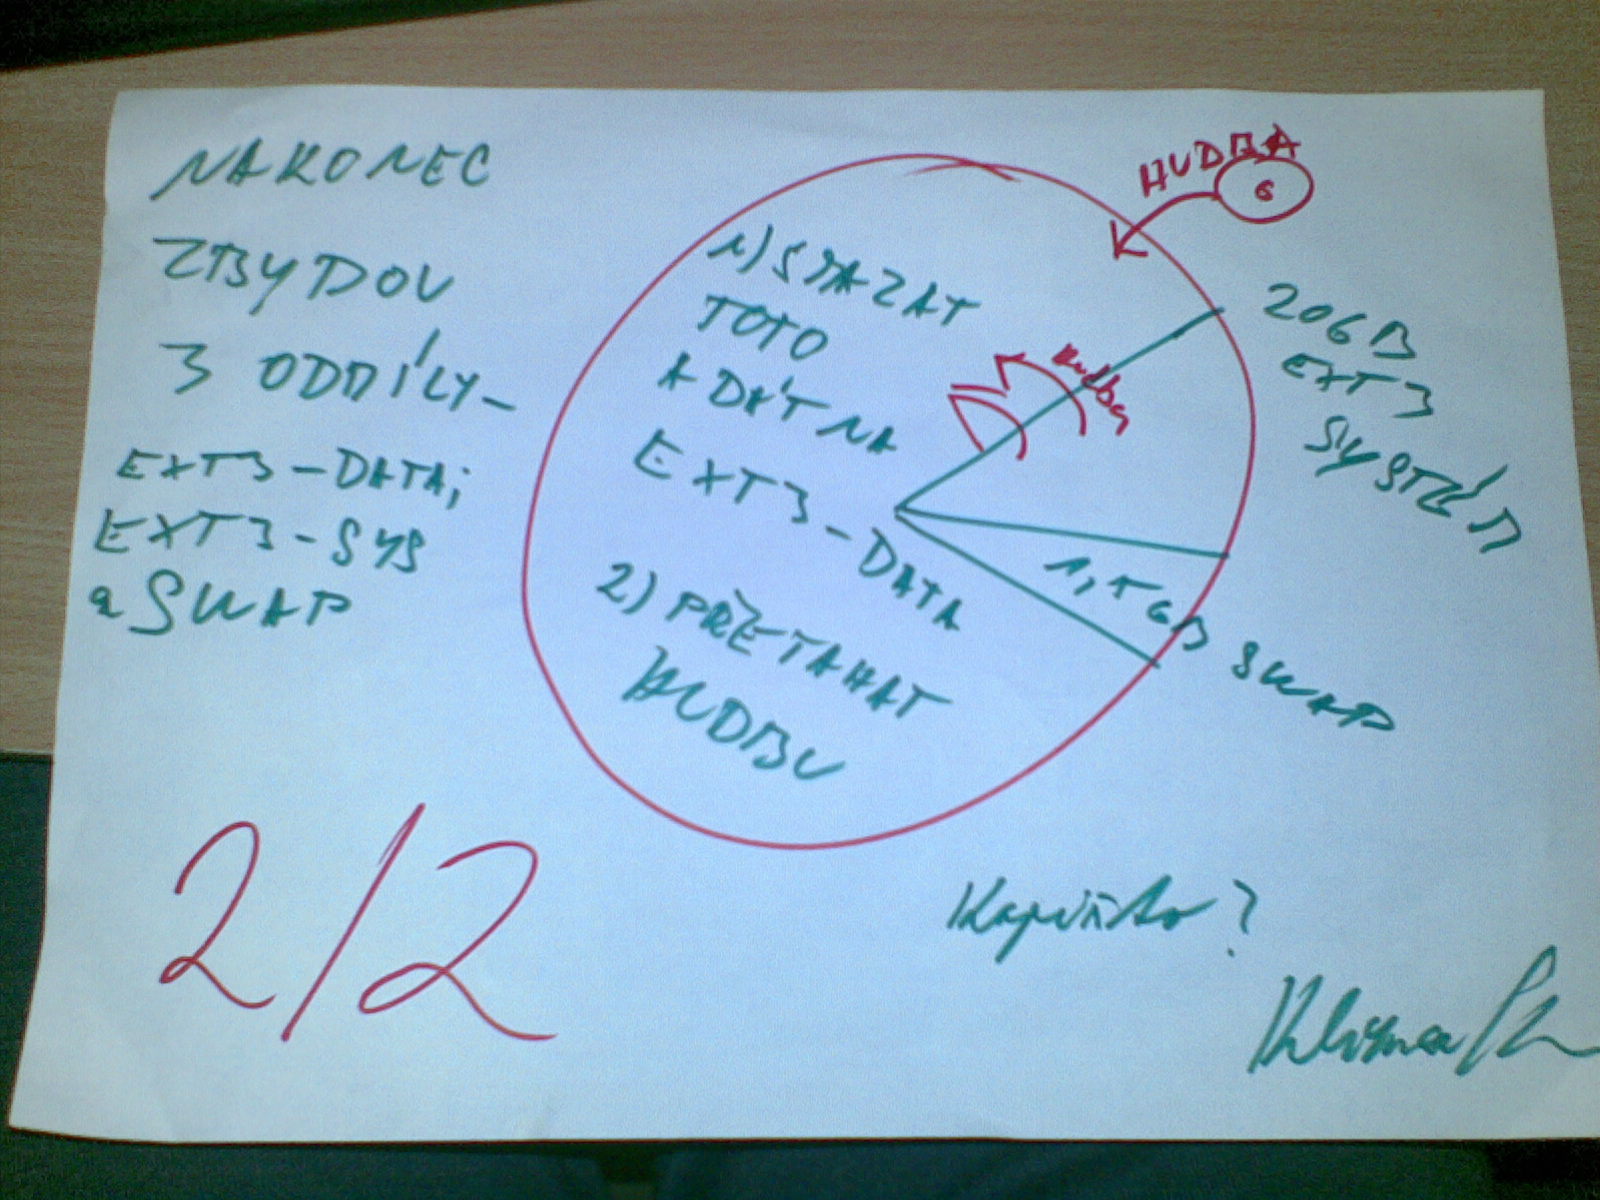 NAKONEC
ZBYDOU
3 ODDÍLY-
EXT3-DATA;
EXT3-SYS
a SWAP
1) SMAZAT
TOTO
A DÁT NA
EXT3-DATA
2) PŘETAHAT
HUDBU
HUDBA
6
hudba
20GB
EXT3
SYSTÉM
1,5GB SWAP
2/2
Kapišto?